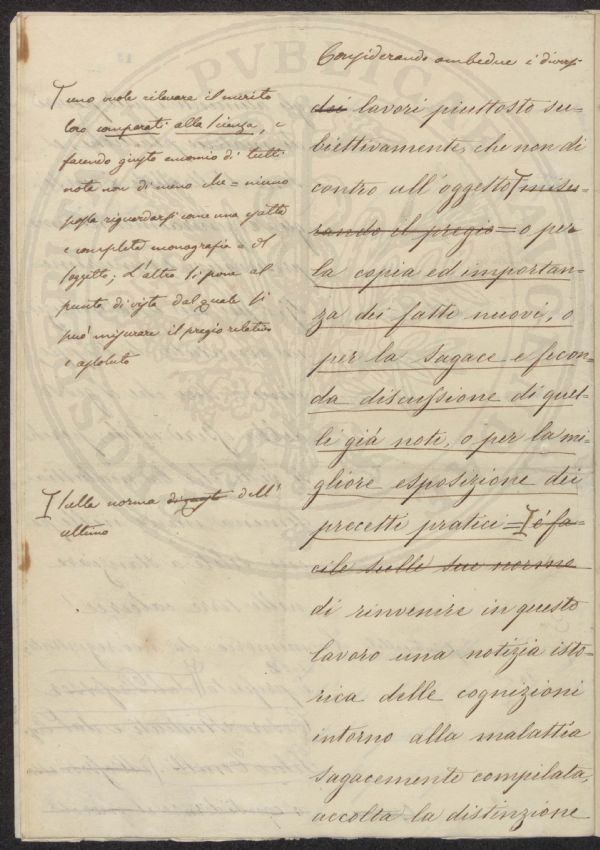 Considerando ambedue i diversi
dei lavori piuttosto su-
biettivamente, che non di
contro all'oggetto misu-
rando il pregio = o per
la copia ed importan-
za dei fatti nuovi, o
per la sagace e fecon-
da discussione di quel-
li già noti, o per la mi-
gliore esposizione dei
precetti pratici = è fa-
cile sulle sue norme
di rinvenire in questo
lavoro una notizia isto-
rica delle cognizioni
intorno alla malattia
sagacemente compilata,
accolta la distinzione
uno vuole rilevare il merito
loro comparati alla scienza, e
facendo giusto encomio di tutti
note non di meno che = niuno
possa riguardarsi come una esatta
e completa monografia = del
soggetto; L'altro si pone al
punto di vista dal quale si
può misurare il pregio relativo
e assoluto
sulla norma dell'
ultimo
PVBLICAE